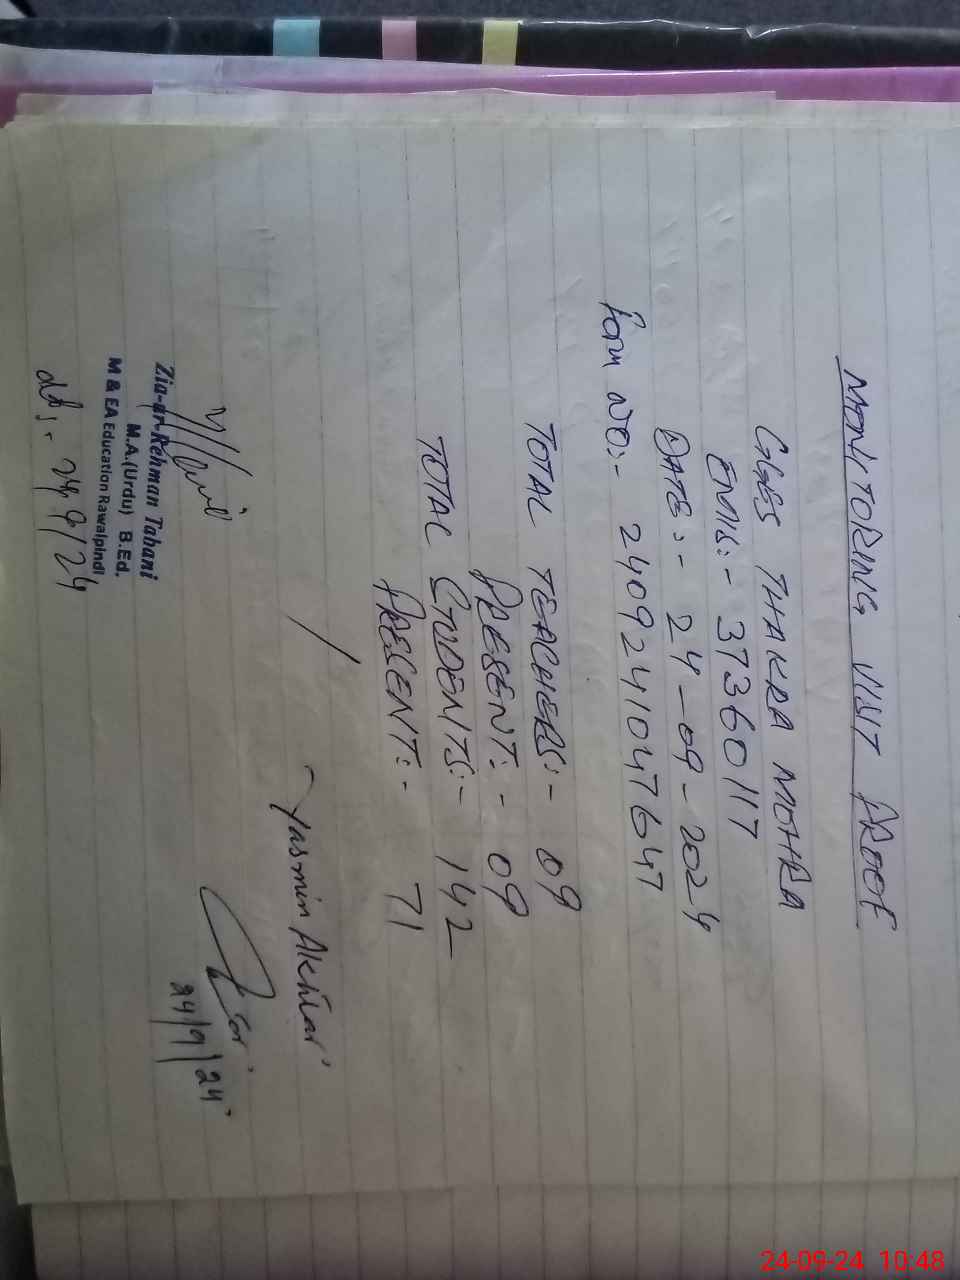 MONITORING VISIT PROOF
GGES THAKRA MOHRA
EMIS:- 37360117
DATE:- 24-09-2024
Form NO:- 2409241047647
TOTAL TEACHERS:- 09
PRESENT:- 09
TOTAL STUDENTS:- 142
PRESENT:- 71
Yasmin Akhtar
24/9/24
Zia-ur-Rehman Tabani
M.A.(Urdu) B.Ed.
M & EA Education Rawalpindi
dt:- 24/9/24
24-09-24 10:48